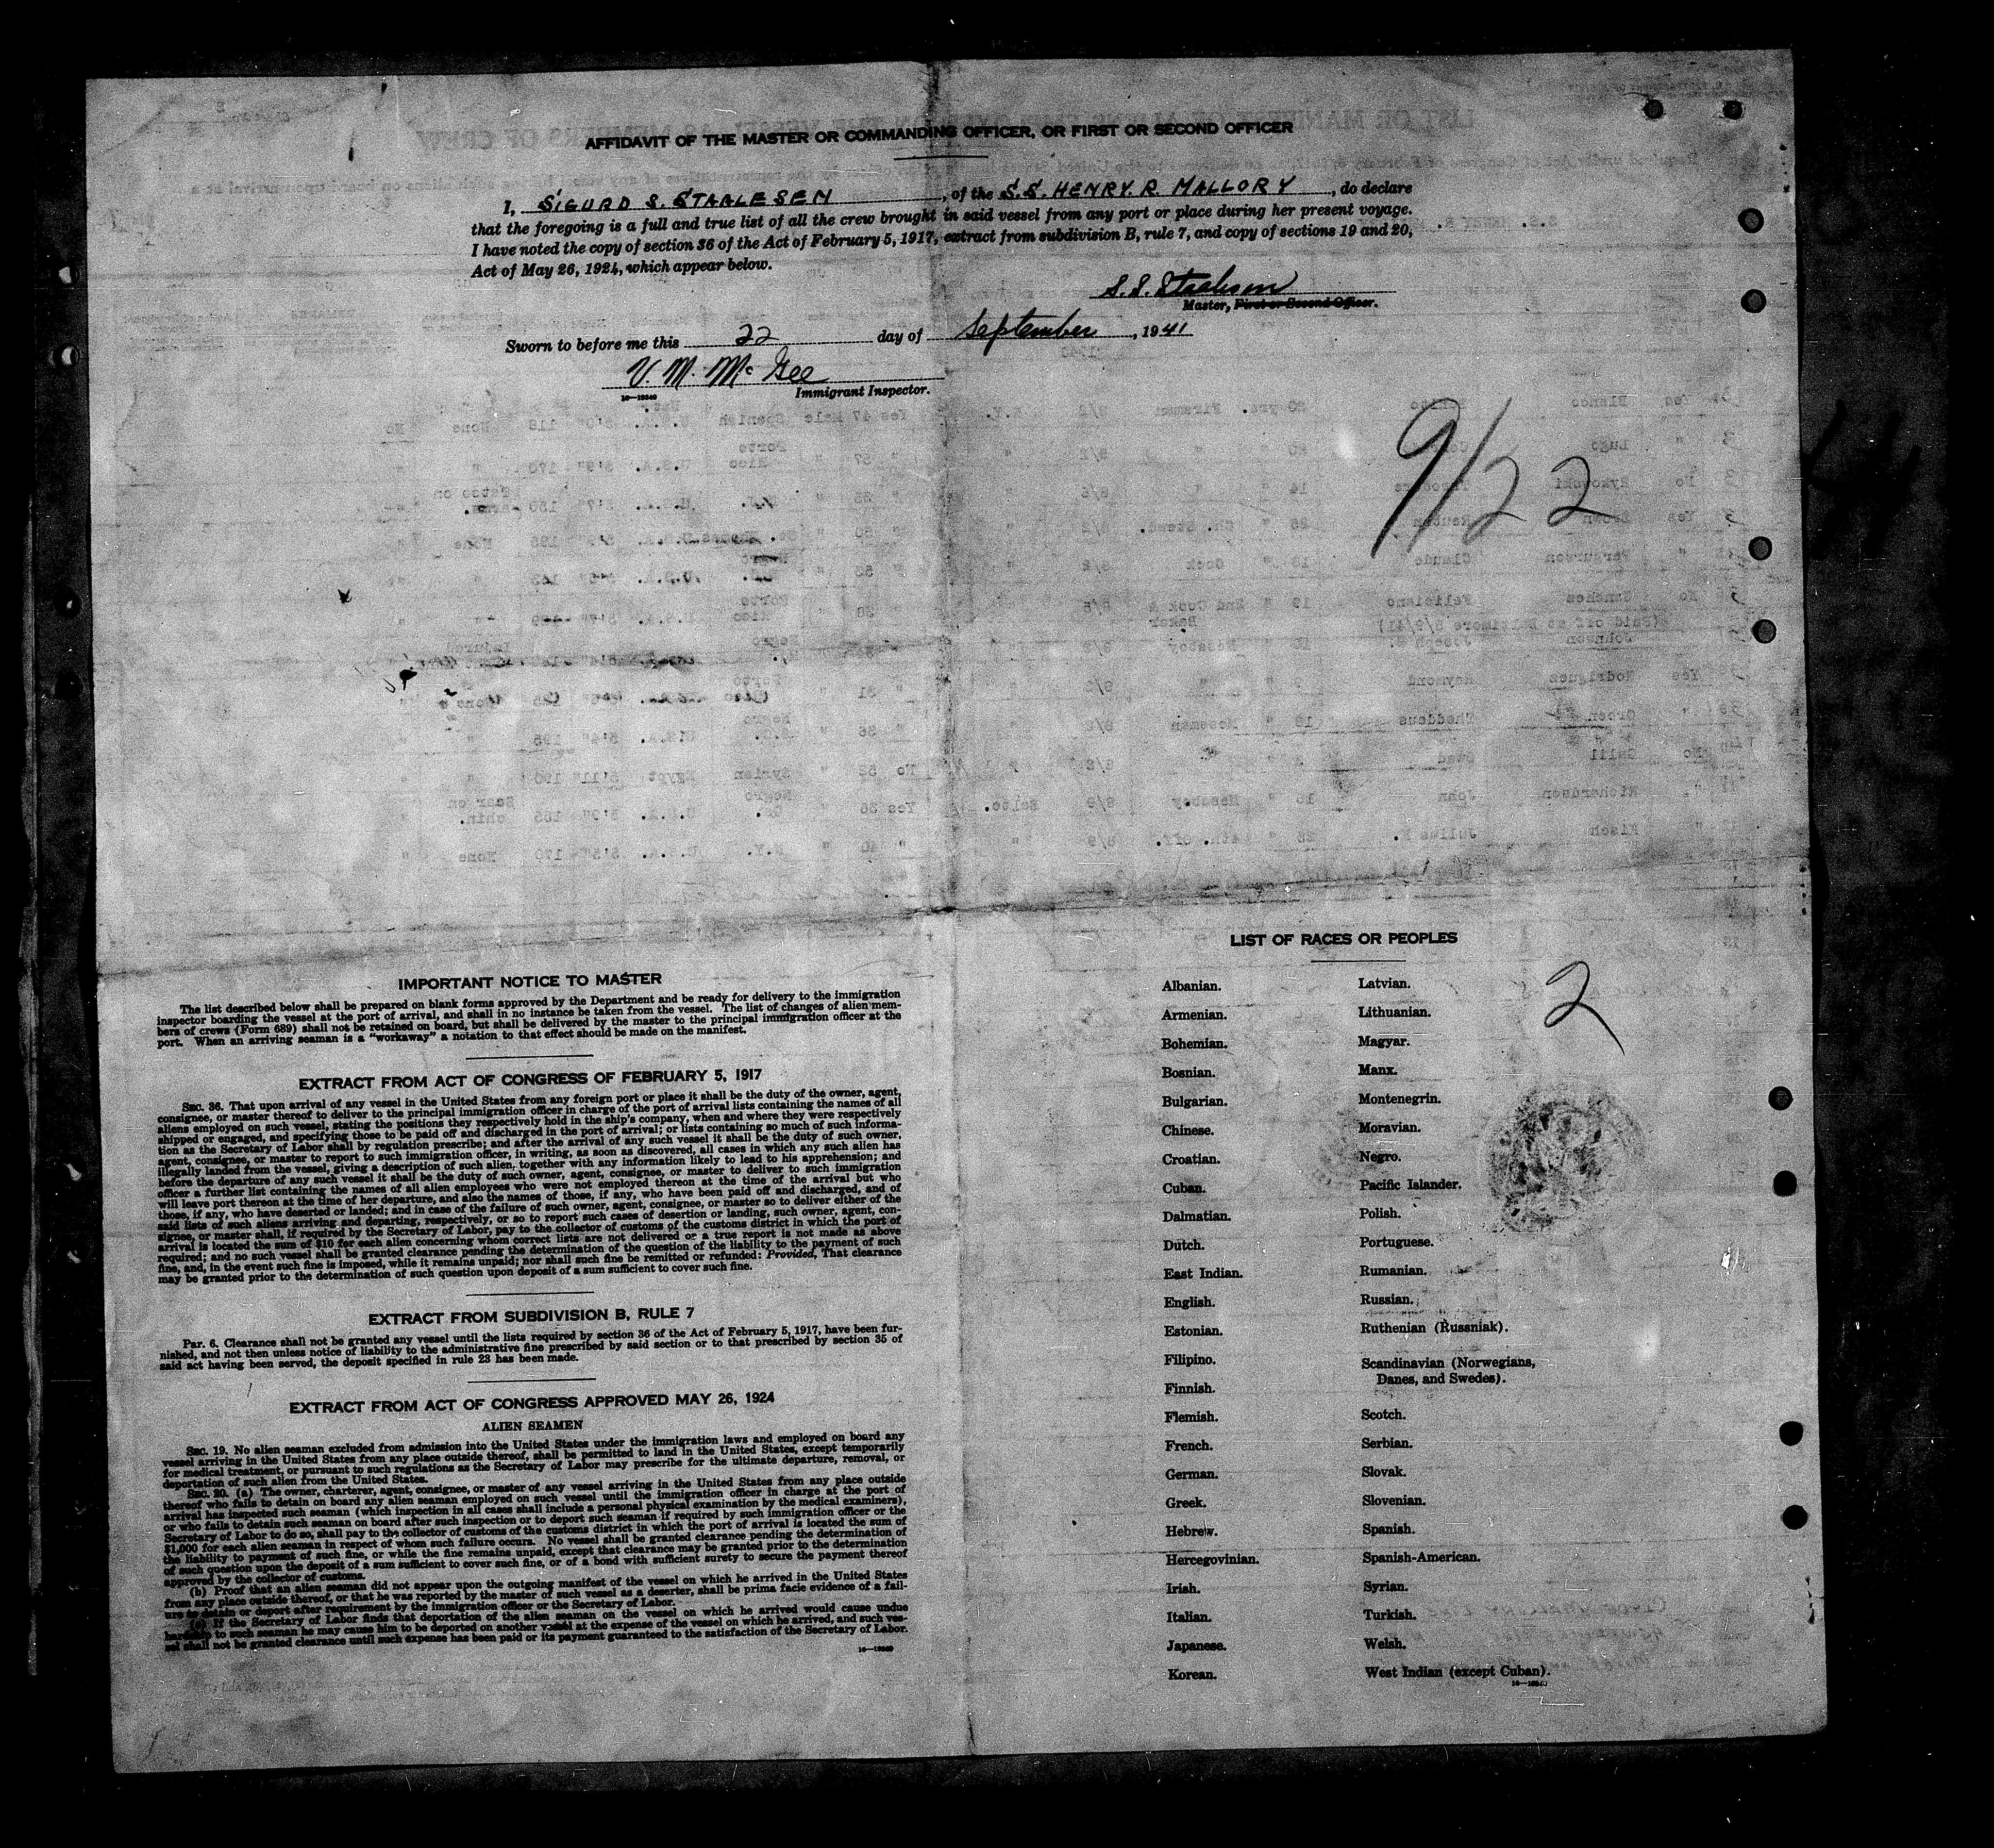 AFFIDAVIT OF THE MASTER OR COMMANDING OFFICER, OR FIRST OR SECOND OFFICER
I, SIGURD S. STAALESEN, of the S.S. HENRY. R. MALLORY, do declare
that the foregoing is a full and true list of all the crew brought in said vessel from any port or place during her present voyage.
I have noted the copy of section 36 of the Act of February 5, 1917, extract from subdivision B, rule 7, and copy of sections 19 and 20,
Act of May 26, 1924, which appear below.
S. S. Staalesen
Master, First or Second Officer.
Sworn to before me this 22 day of September, 1941
V. M. McGee
16—19340
Immigrant Inspector.
9/22
IMPORTANT NOTICE TO MASTER
The list described below shall be prepared on blank forms approved by the Department and be ready for delivery to the immigration
inspector boarding the vessel at the port of arrival, and shall in no instance be taken from the vessel. The list of changes of alien mem-
bers of crews (Form 689) shall not be retained on board, but shall be delivered by the master to the principal immigration officer at the
port. When an arriving seaman is a "workaway" a notation to that effect should be made on the manifest.
EXTRACT FROM ACT OF CONGRESS OF FEBRUARY 5, 1917
SEC. 36. That upon arrival of any vessel in the United States from any foreign port or place it shall be the duty of the owner, agent,
consignee, or master thereof to deliver to the principal immigration officer in charge of the port of arrival lists containing the names of all
aliens employed on such vessel, stating the positions they respectively hold in the ship's company, when and where they were respectively
shipped or engaged, and specifying those to be paid off and discharged in the port of arrival; or lists containing so much of such informa-
tion as the Secretary of Labor shall by regulation prescribe; and after the arrival of any such vessel it shall be the duty of such owner,
agent, consignee, or master to report to such immigration officer, in writing, as soon as discovered, all cases in which any such alien has
illegally landed from the vessel, giving a description of such alien, together with any information likely to lead to his apprehension; and
before the departure of any such vessel it shall be the duty of such owner, agent, consignee, or master to deliver to such immigration
officer a further list containing the names of all alien employees who were not employed thereon at the time of the arrival but who
will leave port thereon at the time of her departure, and also the names of those, if any, who have been paid off and discharged, and of
those, if any, who have deserted or landed; and in case of the failure of such owner, agent, consignee, or master so to deliver either of the
said lists of such aliens arriving and departing, respectively, or so to report such cases of desertion or landing, such owner, agent, con-
signee, or master shall, if required by the Secretary of Labor, pay to the collector of customs of the customs district in which the port of
arrival is located the sum of $10 for each alien concerning whom correct lists are not delivered or a true report is not made as above
required; and no such vessel shall be granted clearance pending the determination of the question of the liability to the payment of such
fine, and, in the event such fine is imposed, while it remains unpaid; nor shall such fine be remitted or refunded: Provided, That clearance
may be granted prior to the determination of such question upon deposit of a sum sufficient to cover such fine.
EXTRACT FROM SUBDIVISION B, RULE 7
Par. 6. Clearance shall not be granted any vessel until the lists required by section 36 of the Act of February 5, 1917, have been fur-
nished, and not then unless notice of liability to the administrative fine prescribed by said section or to that prescribed by section 35 of
said act having been served, the deposit specified in rule 23 has been made.
EXTRACT FROM ACT OF CONGRESS APPROVED MAY 26, 1924
ALIEN SEAMEN
SEC. 19. No alien seaman excluded from admission into the United States under the immigration laws and employed on board any
vessel arriving in the United States from any place outside thereof, shall be permitted to land in the United States, except temporarily
for medical treatment, or pursuant to such regulations as the Secretary of Labor may prescribe for the ultimate departure, removal, or
deportation of such alien from the United States.
SEC. 20. (a) The owner, charterer, agent, consignee, or master of any vessel arriving in the United States from any place outside
thereof who fails to detain on board any alien seaman employed on such vessel until the immigration officer in charge at the port of
arrival has inspected such seaman (which inspection in all cases shall include a personal physical examination by the medical examiners),
or who fails to detain such seaman on board after such inspection or to deport such seaman if required by such immigration officer or the
Secretary of Labor to do so, shall pay to the collector of customs of the customs district in which the port of arrival is located the sum of
$1,000 for each alien seaman in respect of whom such failure occurs. No vessel shall be granted clearance pending the determination of
the liability to payment of such fine, or while the fine remains unpaid, except that clearance may be granted prior to the determination
of such question upon the deposit of a sum sufficient to cover such fine, or of a bond with sufficient surety to secure the payment thereof
approved by the collector of customs.
(b) Proof that an alien seaman did not appear upon the outgoing manifest of the vessel on which he arrived in the United States
from any place outside thereof, or that he was reported by the master of such vessel as a deserter, shall be prima facie evidence of a fail-
ure to detain or deport after requirement by the immigration officer or the Secretary of Labor.
(c) If the Secretary of Labor finds that deportation of the alien seaman on the vessel on which he arrived would cause undue
hardship to such seaman he may cause him to be deported on another vessel at the expense of the vessel on which he arrived, and such ves-
sel shall not be granted clearance until such expense has been paid or its payment guaranteed to the satisfaction of the Secretary of Labor.
16—19340
LIST OF RACES OR PEOPLES
2
Albanian.
Armenian.
Bohemian.
Bosnian.
Bulgarian.
Chinese.
Croatian.
Cuban.
Dalmatian.
Dutch.
East Indian.
English.
Estonian.
Filipino.
Finnish.
Flemish.
French.
German.
Greek.
Hebrew.
Hercegovinian.
Irish.
Italian.
Japanese.
Korean.
Latvian.
Lithuanian.
Magyar.
Manx.
Montenegrin.
Moravian.
Negro.
Pacific Islander.
Polish.
Portuguese.
Rumanian.
Russian.
Ruthenian (Russniak).
Scandinavian (Norwegians,
Danes, and Swedes).
Scotch.
Serbian.
Slovak.
Slovenian.
Spanish.
Spanish-American.
Syrian.
Turkish.
Welsh.
West Indian (except Cuban).
16—19340